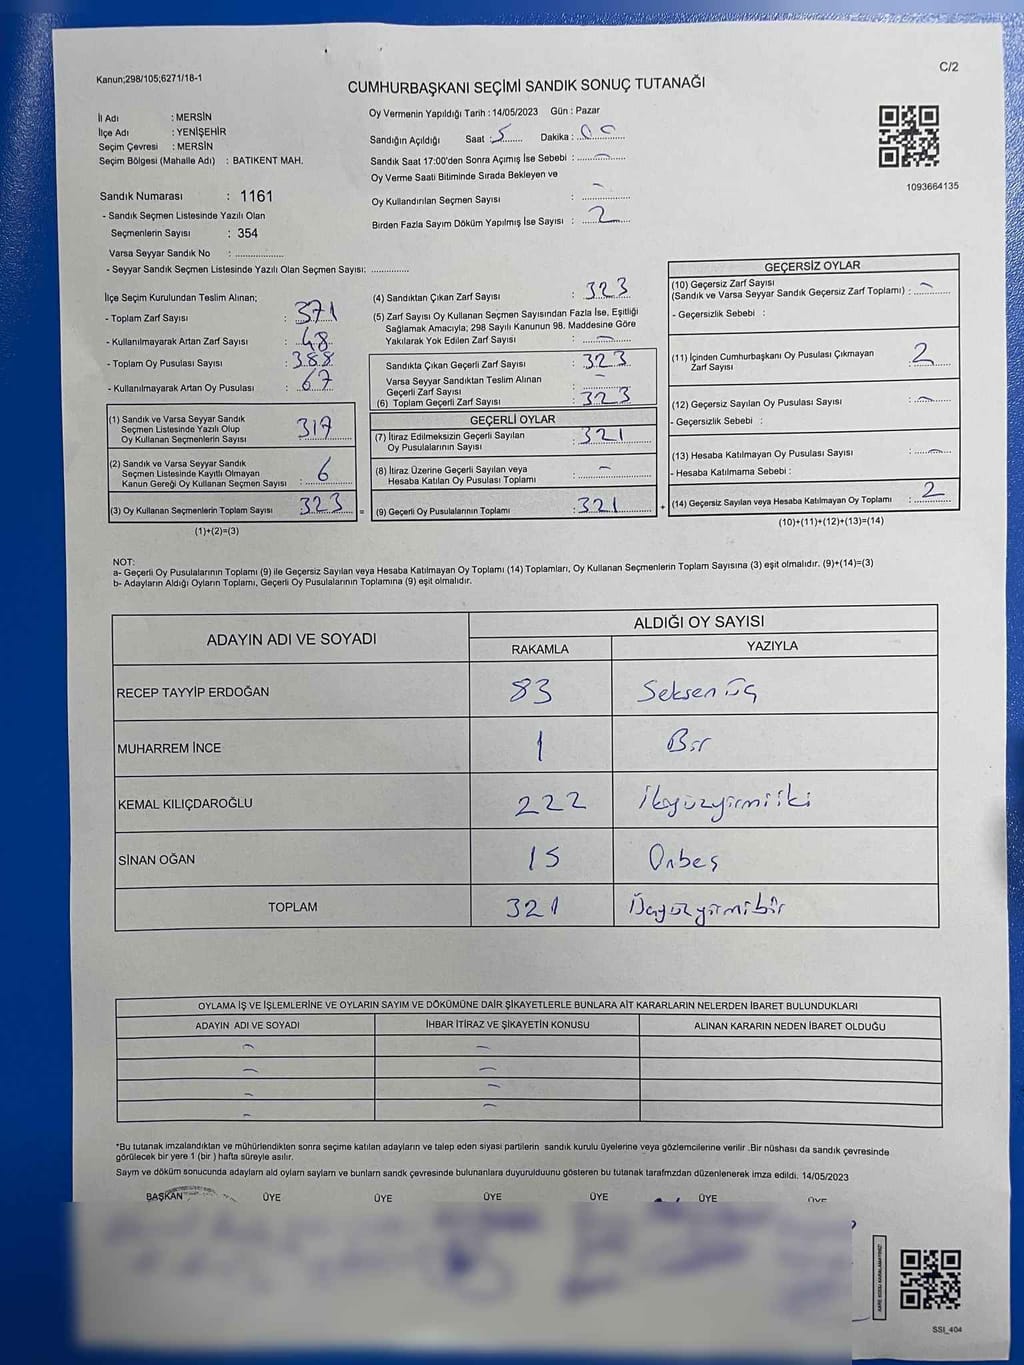 Kanun;298/105;6271/18-1
C/2
CUMHURBAŞKANI SEÇİMİ SANDIK SONUÇ TUTANAĞI
İl Adı : MERSİN
İlçe Adı : YENİŞEHİR
Seçim Çevresi : MERSİN
Seçim Bölgesi (Mahalle Adı) : BATIKENT MAH.
Oy Vermenin Yapıldığı Tarih : 14/05/2023 Gün : Pazar
Sandığın Açıldığı Saat : 5 Dakika : 00
Sandık Saat 17:00'den Sonra Açımış İse Sebebi : -
Oy Verme Saati Bitiminde Sırada Bekleyen ve
Oy Kullandırılan Seçmen Sayısı : -
Birden Fazla Sayım Döküm Yapılmış İse Sayısı : 2
1093664135
Sandık Numarası : 1161
- Sandık Seçmen Listesinde Yazılı Olan
Seçmenlerin Sayısı : 354
Varsa Seyyar Sandık No : ................
- Seyyar Sandık Seçmen Listesinde Yazılı Olan Seçmen Sayısı: .............
İlçe Seçim Kurulundan Teslim Alınan;
- Toplam Zarf Sayısı : 371
- Kullanılmayarak Artan Zarf Sayısı : 48
- Toplam Oy Pusulası Sayısı : 388
- Kullanılmayarak Artan Oy Pusulası : 67
(1) Sandık ve Varsa Seyyar Sandık
Seçmen Listesinde Yazılı Olup
Oy Kullanan Seçmenlerin Sayısı 317
(2) Sandık ve Varsa Seyyar Sandık
Seçmen Listesinde Kayıtlı Olmayan
Kanun Gereği Oy Kullanan Seçmen Sayısı : 6
(3) Oy Kullanan Seçmenlerin Toplam Sayısı : 323 =
(1)+(2)=(3)
(4) Sandıktan Çıkan Zarf Sayısı : 323
(5) Zarf Sayısı Oy Kullanan Seçmen Sayısından Fazla İse, Eşitliği
Sağlamak Amacıyla; 298 Sayılı Kanunun 98. Maddesine Göre
Yakılarak Yok Edilen Zarf Sayısı : -
Sandıkta Çıkan Geçerli Zarf Sayısı : 323
Varsa Seyyar Sandıktan Teslim Alınan
Geçerli Zarf Sayısı : -
(6) Toplam Geçerli Zarf Sayısı : 323
GEÇERLİ OYLAR
(7) İtiraz Edilmeksizin Geçerli Sayılan
Oy Pusulalarının Sayısı : 321
(8) İtiraz Üzerine Geçerli Sayılan veya
Hesaba Katılan Oy Pusulası Toplamı : -
(9) Geçerli Oy Pusulalarının Toplamı : 321 +
GEÇERSİZ OYLAR
(10) Geçersiz Zarf Sayısı
(Sandık ve Varsa Seyyar Sandık Geçersiz Zarf Toplamı) : -
- Geçersizlik Sebebi :
(11) İçinden Cumhurbaşkanı Oy Pusulası Çıkmayan
Zarf Sayısı : 2
(12) Geçersiz Sayılan Oy Pusulası Sayısı : -
- Geçersizlik Sebebi :
(13) Hesaba Katılmayan Oy Pusulası Sayısı : -
- Hesaba Katılmama Sebebi :
(14) Geçersiz Sayılan veya Hesaba Katılmayan Oy Toplamı : 2
(10)+(11)+(12)+(13)=(14)
NOT:
a- Geçerli Oy Pusulalarının Toplamı (9) ile Geçersiz Sayılan veya Hesaba Katılmayan Oy Toplamı (14) Toplamları, Oy Kullanan Seçmenlerin Toplam Sayısına (3) eşit olmalıdır. (9)+(14)=(3)
b- Adayların Aldığı Oyların Toplamı, Geçerli Oy Pusulalarının Toplamına (9) eşit olmalıdır.
ADAYIN ADI VE SOYADI
ALDIĞI OY SAYISI
RAKAMLA YAZIYLA
RECEP TAYYİP ERDOĞAN 83 Seksen üç
MUHARREM İNCE 1 Bir
KEMAL KILIÇDAROĞLU 222 İkiyüzyirmiiki
SİNAN OĞAN 15 Onbeş
TOPLAM 321 Üçyüzyirmibir
OYLAMA İŞ VE İŞLEMLERİNE VE OYLARIN SAYIM VE DÖKÜMÜNE DAİR ŞİKAYETLERLE BUNLARA AİT KARARLARIN NELERDEN İBARET BULUNDUKLARI
ADAYIN ADI VE SOYADI İHBAR İTİRAZ VE ŞİKAYETİN KONUSU ALINAN KARARIN NEDEN İBARET OLDUĞU
- -
- -
- -
- -
*Bu tutanak imzalandıktan ve mühürlendikten sonra seçime katılan adayların ve talep eden siyasi partilerin sandık kurulu üyelerine veya gözlemcilerine verilir .Bir nüshası da sandık çevresinde
görülecek bir yere 1 (bir ) hafta süreyle asılır.
Sayım ve döküm sonucunda adayların ald oyların sayların ve bunların sandk çevresinde bulunanlara duyurulduunu gösteren bu tutanak tarafmzdan düzenlenerek imza edildi. 14/05/2023
BAŞKAN ÜYE ÜYE ÜYE ÜYE ÜYE ÜYE
KARE KODU KARALAMAYINIZ!
SSI_404